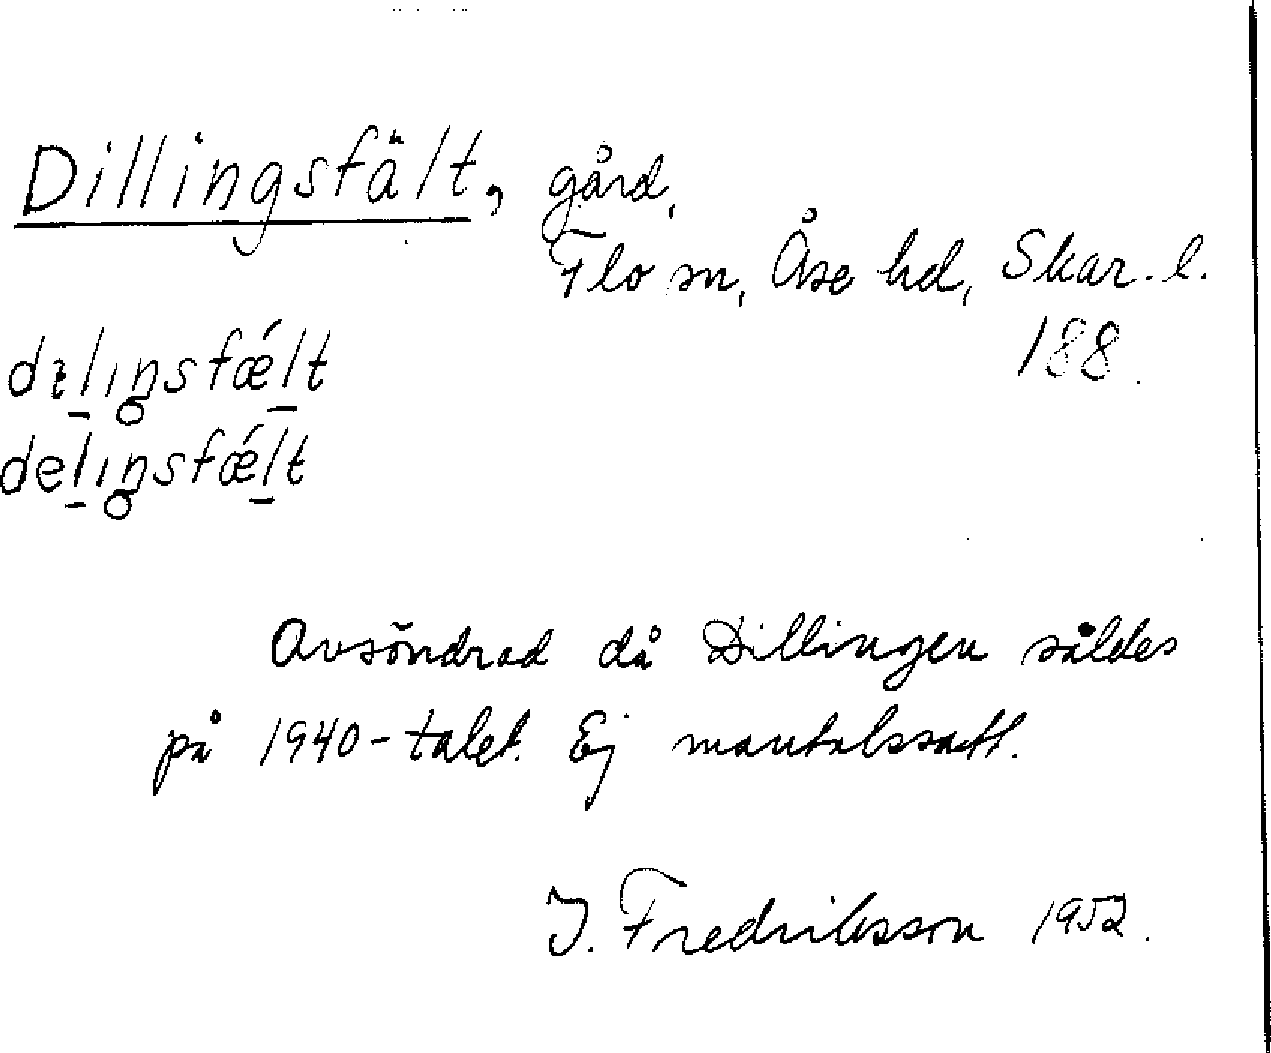 Dillingsfält, gård,
Flo sn, Åse hd, Skar. l.
188.
dɪl̠ɪŋ̥sfǽl̠t
del̠ɪŋ̥sfǽl̠t
Avsöndrad då Dillingen såldes
på 1940-talet. Ej mantalssatt.
I. Fredriksson 1952.